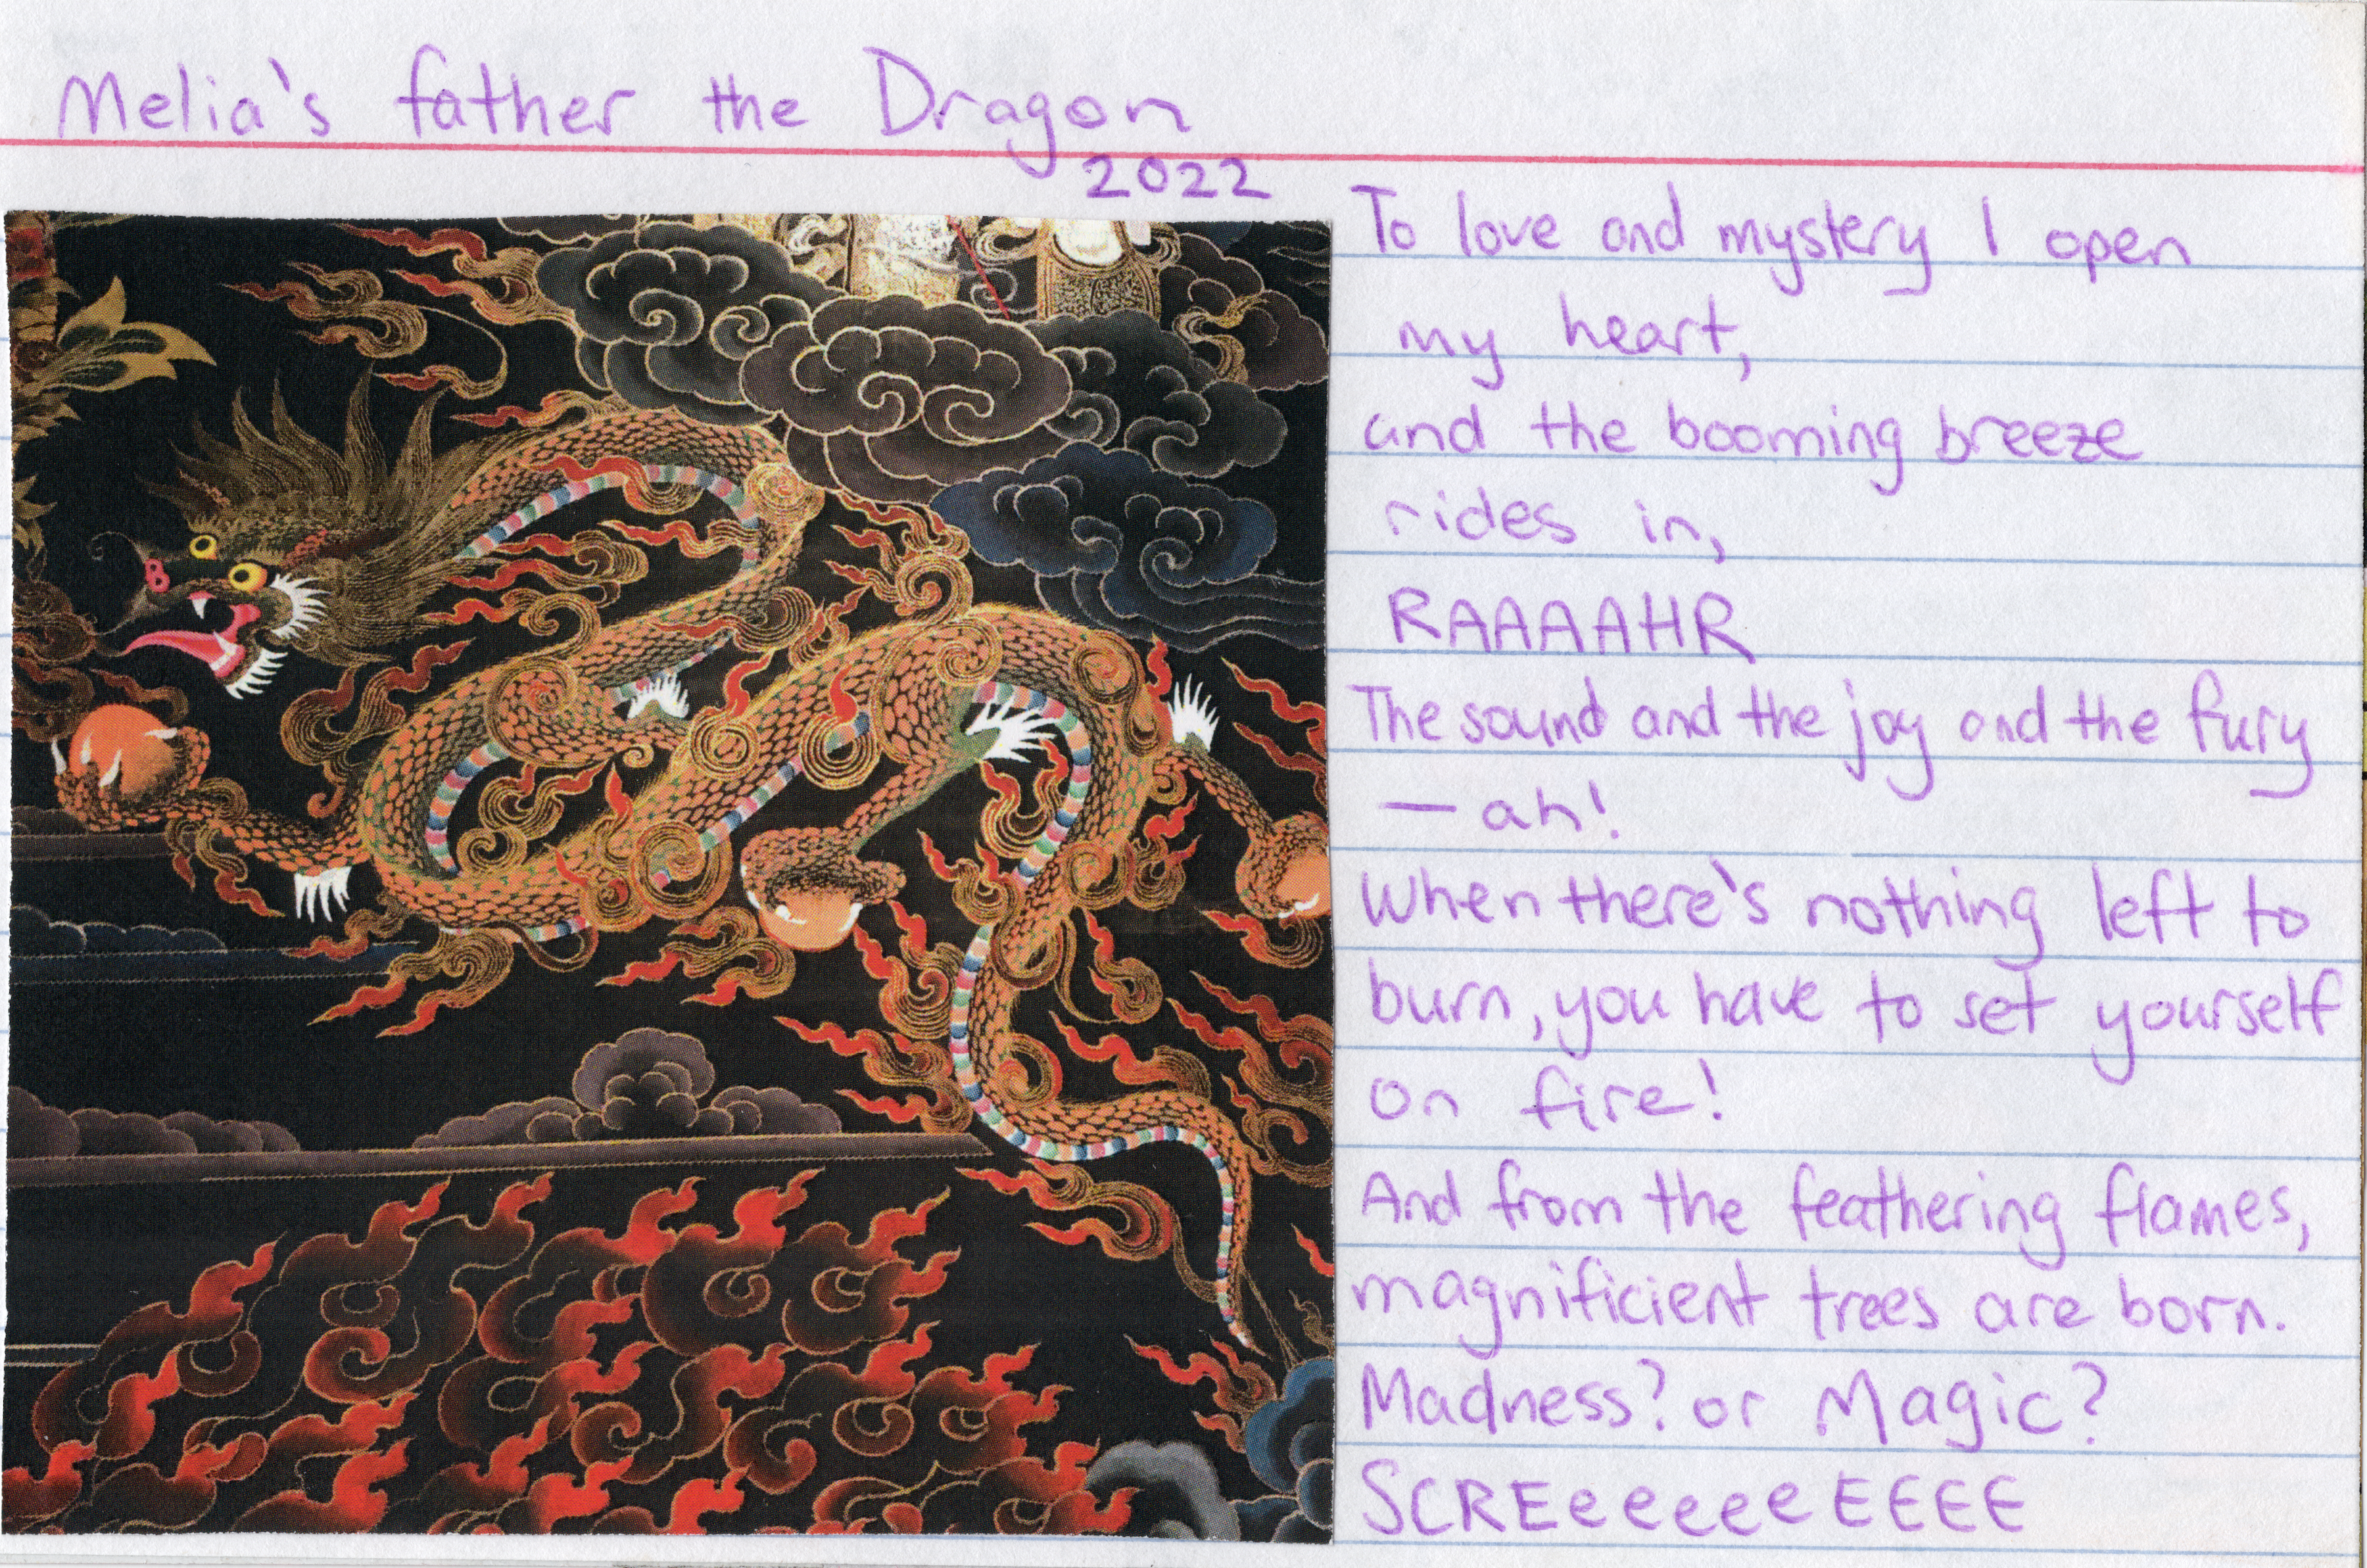 Melia's father the Dragon
2022
To love and mystery I open
my heart,
and the booming breeze
rides in,
RAAAAHR
The sound and the joy and the fury
— ah!
When there's nothing left to
burn, you have to set yourself
on fire!
And from the feathering flames,
magnificient trees are born.
Madness? or Magic?
SCREeeeeeEEEE